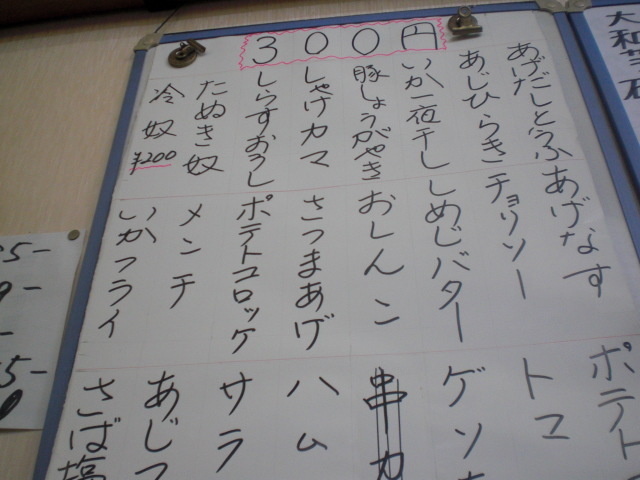 300円
あげだしとうふ
あじひらき
いか一夜干し
豚しょうがやき
しゃけカマ
しらすおろし
たぬき奴
冷奴
¥200
あげなす
チョリソー
しめじバター
おしんこ
さつまあげ
ポテトコロッケ
メンチ
いかフライ
ポテト
トマ
ゲソ
串カ
ハム
サラ
あじフ
さば塩
大和芋